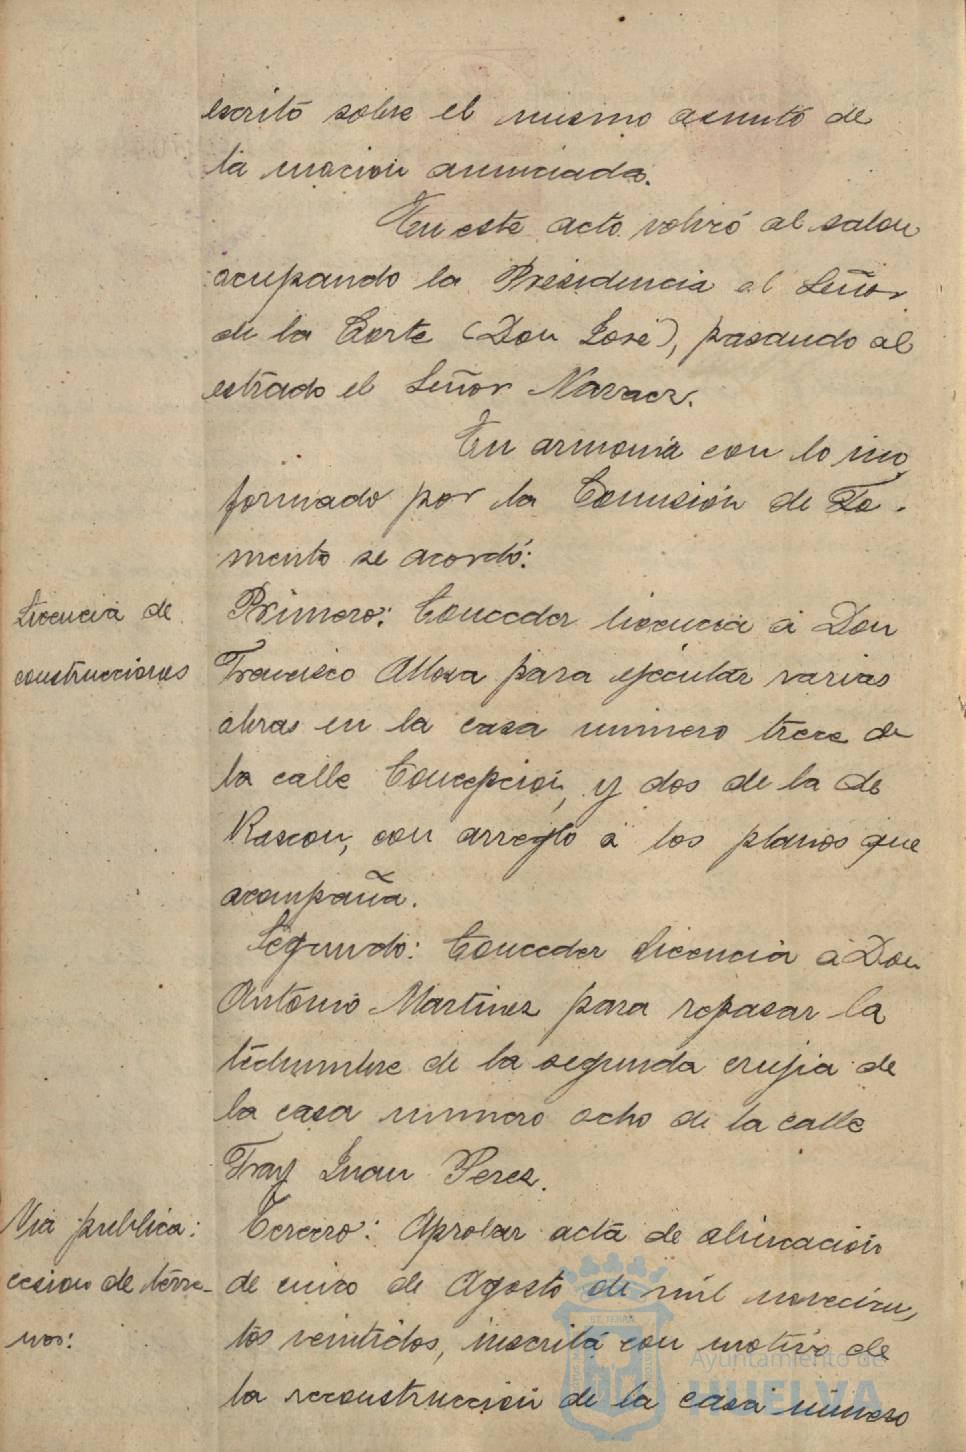 escrito sobre el mismo asunto de
la mocion anunciada.
En este acto volvió al salon
ocupando la Presidencia el Señor
de la Corte (Don José), pasando al
estrado el Señor
En armonia con lo in-
formado por la Comisión de Fo-
mento se acordó:
Licencia de
construcciones
Primero: Conceder licencia á Don
Francisco para ejecutar varias
obras en la casa número trece de
la calle Concepción, y dos de la de
Rascon, con arreglo á los planos que
acompaña.
Segundo: Conceder licencia á Don
Antonio Martinez para repasar la
techumbre de la segunda crujia de
la casa número ocho de la calle
Fray Juan Perez.
Via publica:
cesion de terre-
nos:
Tercero: Aprobar acta de alineación
de de Agosto de mil novecien-
tos veintidos, inscrita con motivo de
la reconstrucción de la casa número
Ayuntamiento de
HUELVA